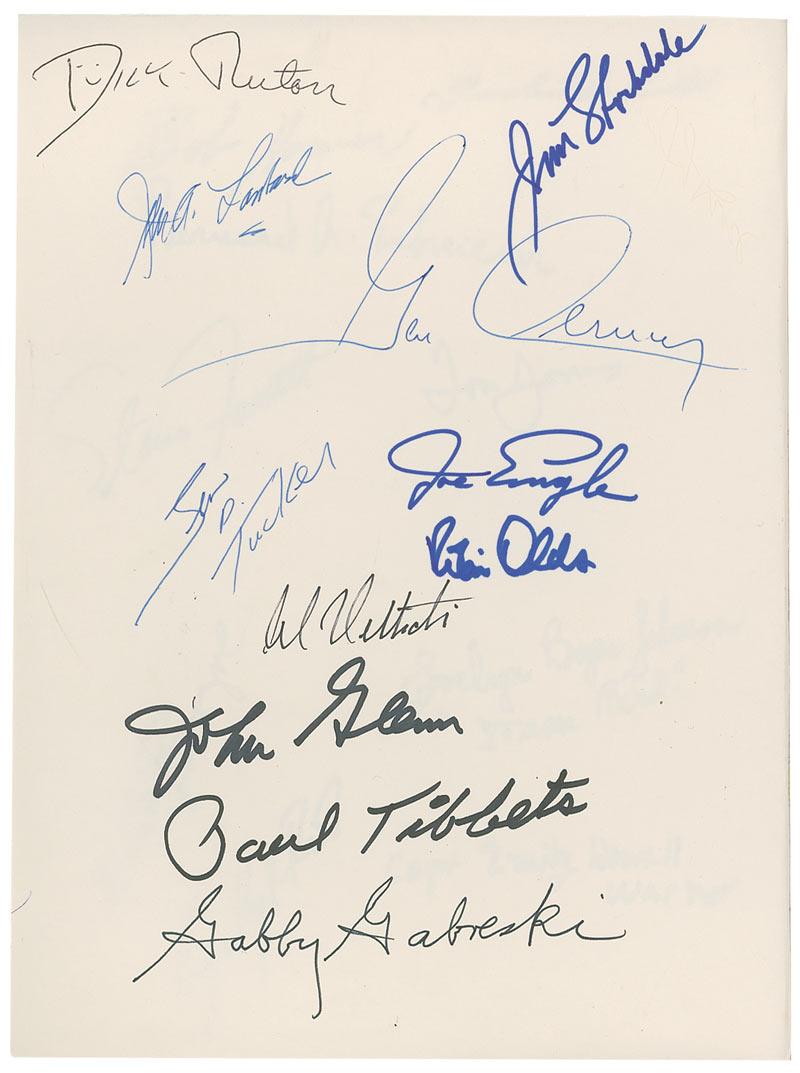 Dick Rutan
Jim Stockdale
John A.
Gene Cernan
Sean D.
Tucker
Joe Engle
Robin Olds
Al
John Glenn
Paul Tibbets
Gabby Gabreski